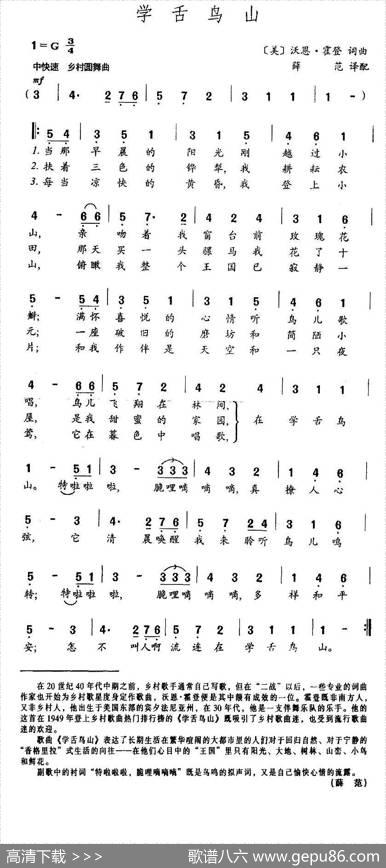 学舌鸟山
1=G 3/4
〔美〕沃恩·霍登 词曲
中快速 乡村圆舞曲
薛 范 译配
mf
(3 | 4· 2 7 6 | 5 7 2 | 3 1 1 | 1 - )
5 4 | 3 5 1 | 3 5 1 | 4 6 6
1.当那 早晨的 阳光刚 越过小
2.扶着 三色的 铧犁,我 耕耘农
3.每当 凉快的 黄昏,我 登上小
4 - 6 6 | 5 7· 2 | 4 2 4 | 3 1 6
山, 亲吻着我窗台前 玫瑰花
田, 那天买一头骡马我 花了十
山, 俯瞰我整个王国已 寂静一
5 - 5 4 | 3 5 1 | 3 5 1 | 4 6 6
鲜; 满怀喜悦的 心情听 鸟儿歌
元; 一座破旧的 磨坊和 简陋小
片; 和我作伴是 天空和 一只夜
4 - 6 6 | 5 7 2 | 4 2 4 | 3 1 1
唱, 鸟儿飞翔在 林间,
屋, 是我甜蜜的 家园, 在学舌鸟
莺, 它在暮色中 唱歌,
1 - 5 1 | 3 - 3 3 3 | 3 2 1 | 4 4 6
山。 特啦啦啦, 脆哩嘀嘀嘀,真 撩人心
5 - 3 | 4· 2 7 6 | 5 7 2 4 | 3 1 6
弦, 它清晨唤醒我来聆听 鸟儿鸣
5 - 5 1 | 3 - 3 3 3 | 3 2 1 | 4 4 6
转; 特啦啦啦, 脆哩嘀嘀嘀, 多祥和平
5 - 3 | 4· 2 7 6 | 5 7 2 | 3 1 1 | 1 -
安; 怎不叫人啊流连在 学舌鸟山。
在20世纪40年代中期之前,乡村歌手通常自己写歌,但在“二战”以后,一些专业的词曲
作家也开始为乡村歌星度身定作歌曲,沃恩·霍登便是其中颇有成效的一位。霍登既非南方人,
又非乡村人,他出生于美国东部的宾夕法尼亚州,在30年代,他是一支伴舞乐队的乐手。他的
这首在1949年登上乡村歌曲热门排行榜的《学舌鸟山》既吸引了乡村歌曲迷,也受到流行歌曲
迷的欢迎。
歌曲《学舌鸟山》表达了长期生活在繁华喧闹的大都市里的人们对于回归自然、对于宁静的
“香格里拉”式生活的向往——在他们心目中的“王国”里只有阳光、大地、树林、山峦、小鸟
和鲜花。
副歌中的衬词“特啦啦啦,脆哩嘀嘀嘀”既是鸟鸣的拟声词,又是自己愉快心情的流露。
(薛 范)
高清下载 >>>
歌谱八六 www.gepu86.com